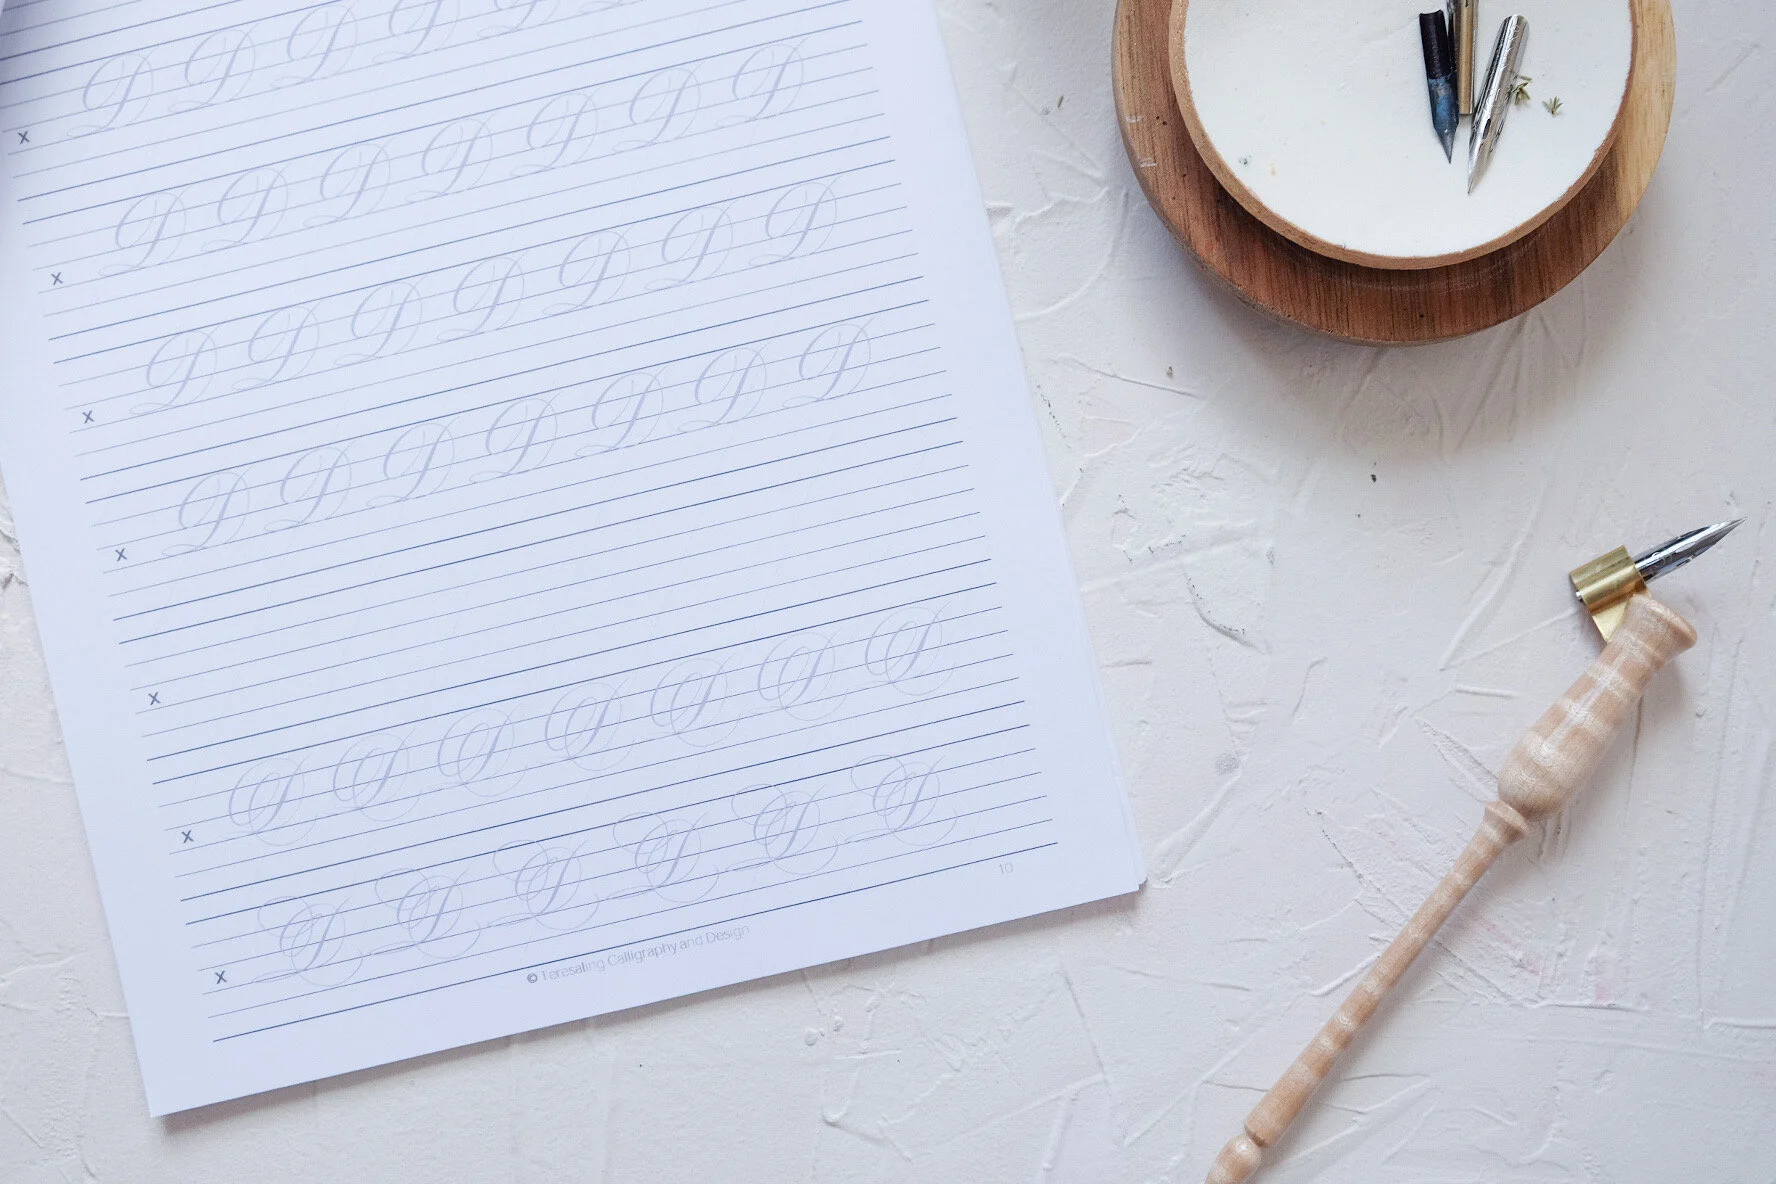 x D D D D D
x D D D D D D D
x D D D D D D D
x D D D D D D D
x
x D D D D D D D
x D D D D D D
© Teresaling Calligraphy and Design
10